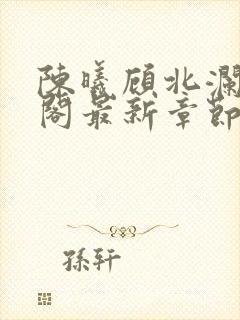 陳曦顧北瀾
閣最新章節
孫軒